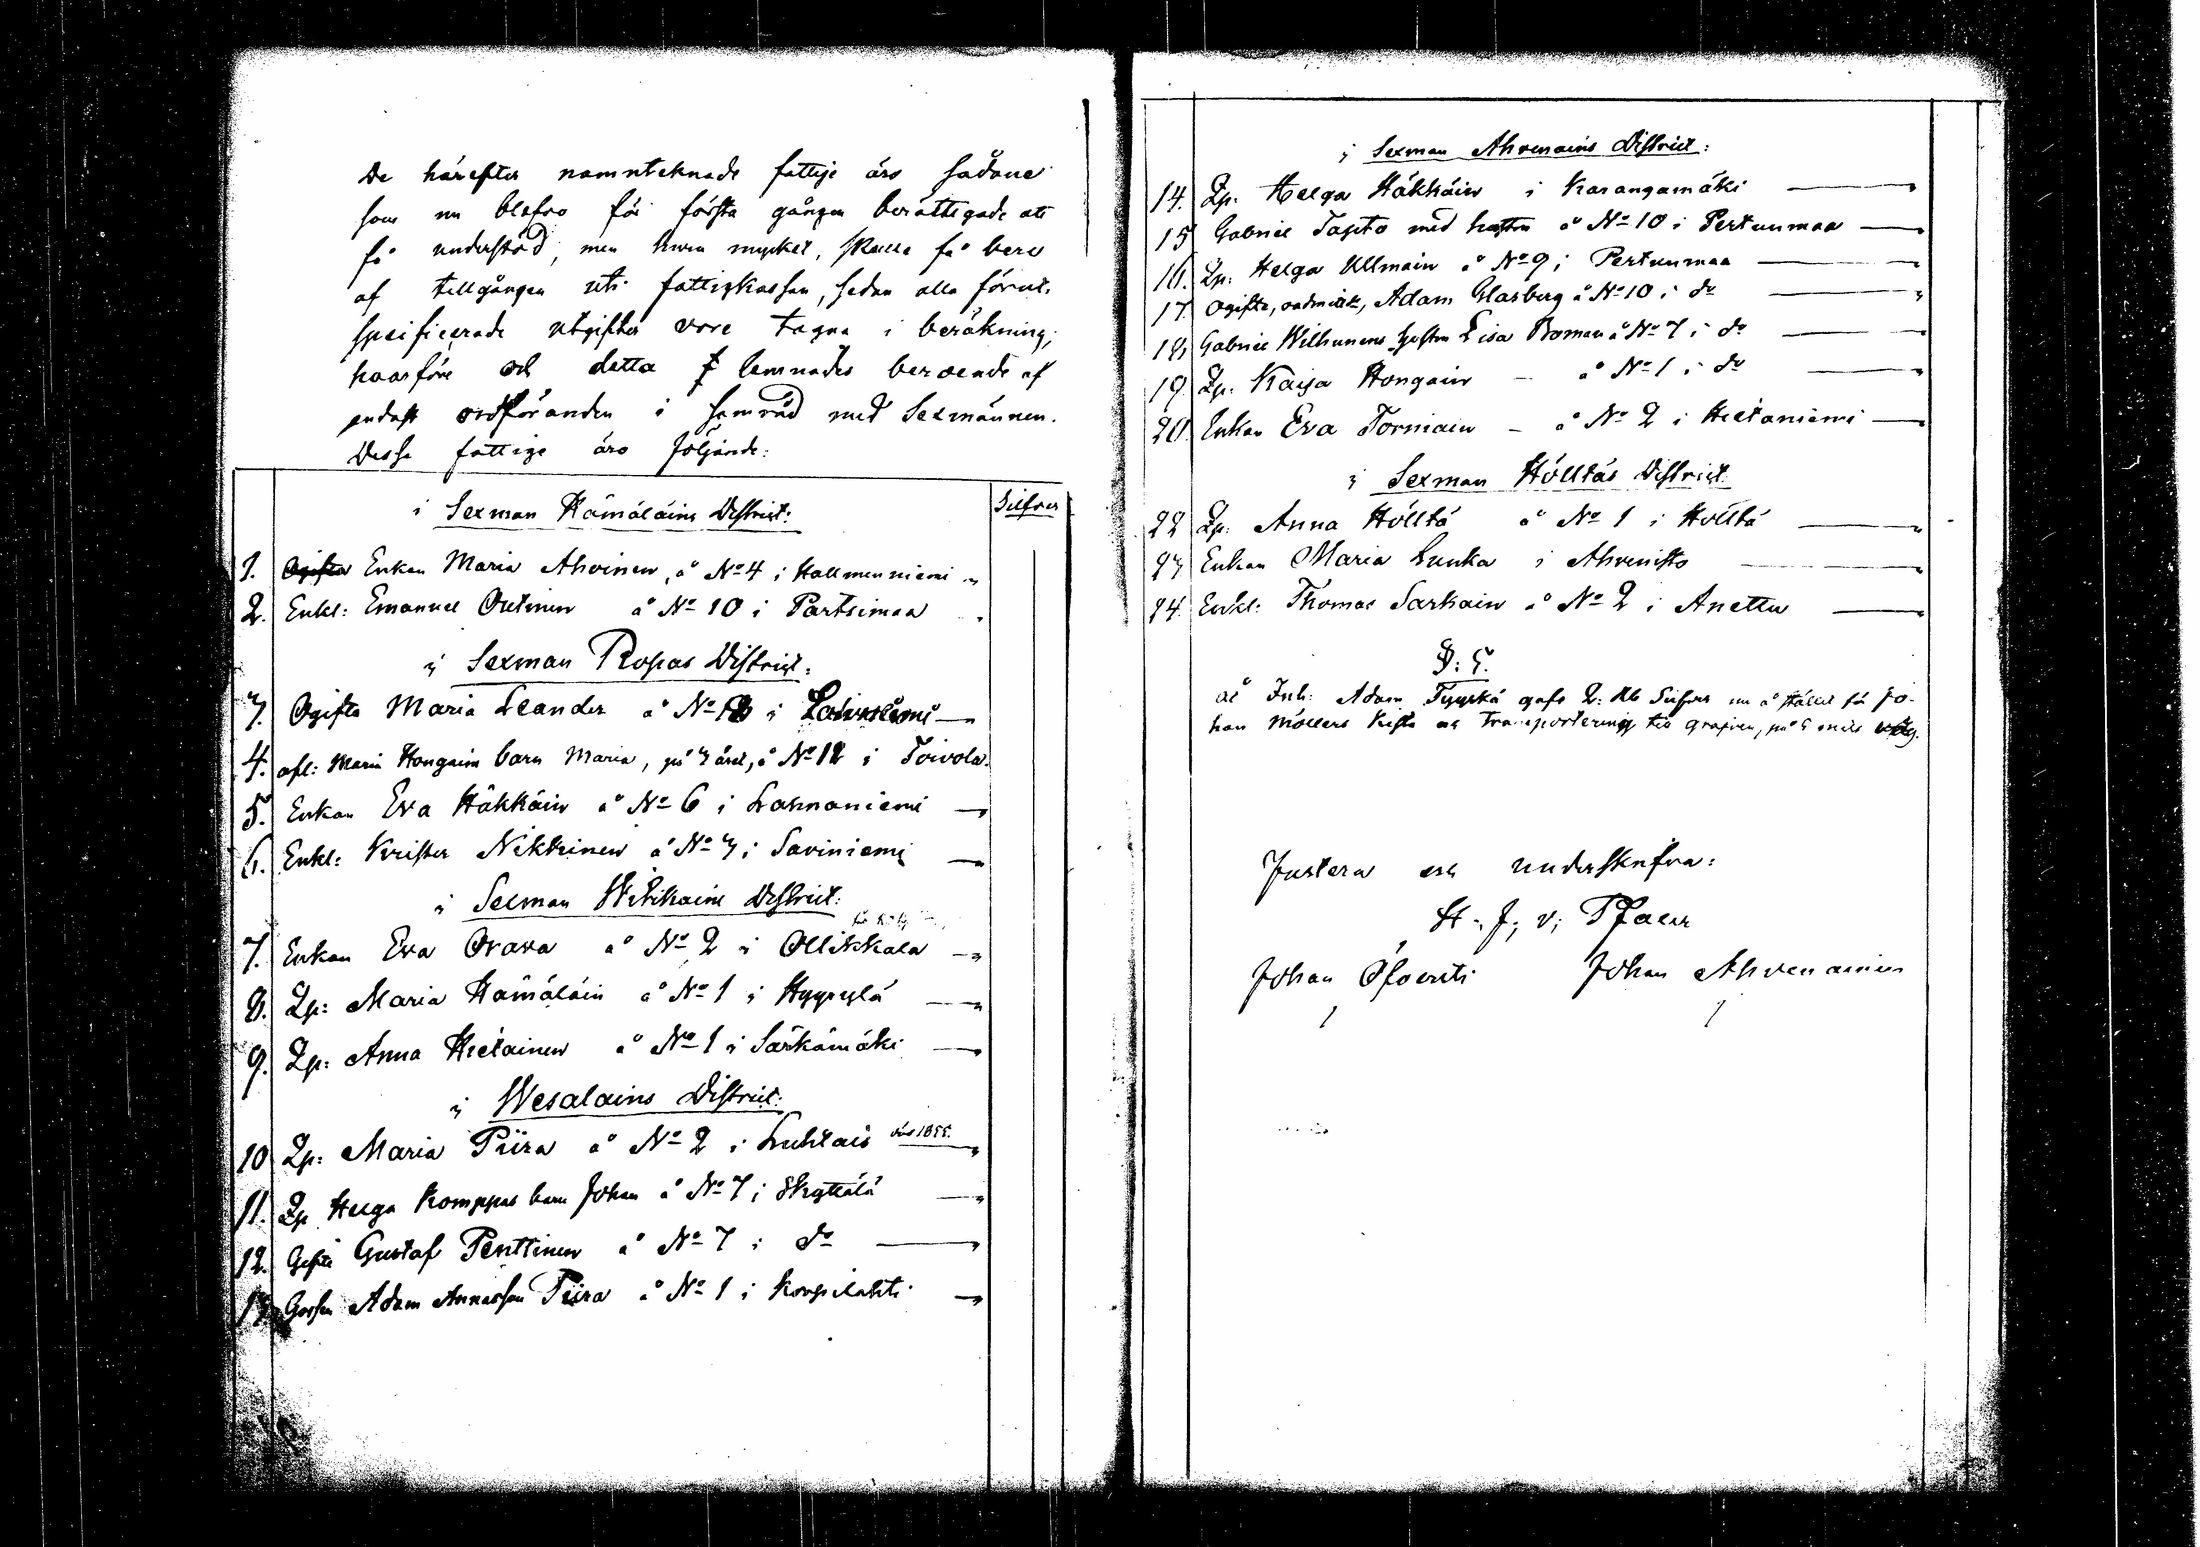 De härefter namntecknade fattige äro sådane
som nu blefvo för första gången berättigade att
få understöd, men huru mycket, skulle få bero
af tillgången uti fattigkassan, sedan alla förut-
specificerade utgifter vore tagna i beräkning;
hvarföre och detta lemnades beroende af
endast ordföranden i samråd med Sexmännen.
Desse fattige äro följande:
Silfver
i Sexman Hämäläins District:
1. Enkan Maria Ahvinen, å No 4 i Hallmenniemi "
2. Enkl: Emanuel Outinen å No 10 i Partsimaa "
i Sexman Ropas District:
3. Ogifta Maria Leander å No 12 i "
4. afl: Maria Hongains barn Maria, på 3 året, å No 12 i Toivola.
5. Enkan Eva Häkkäin å No 6 i Lahnaniemi "
6. Enkl: Krister Nikkinen å No 3 i Saviniemi "
i Sexman Wihikains District:
7. Enkan Eva Orava å No 2 i Ollikkala "
8. Qp: Maria Hämäläin å No 1 i Hyyrylä "
9. Qp: Anna Hietainen å No 1 i Särkämäki "
i Wesalains District:
10 Qp: Maria Piira å No 2 i Luhtais 1855. "
11. Qp Helga Komppas barn Johan å No 7 i Skyttälä "
12. Gifte Gustaf Penttinen å No 7 i do "
13. Gossen Adam Annasson Piira å No 1 i Korpilahti "
i Sexman Ahvenains District:
14. Qp: Helga Häkkäin i Karangamäki "
15 Gabriel Tapito med hustru å No 10 i Pertunmaa "
16. Qp: Helga Ullmain å No 9 i Pertunmaa "
17 Ogifte, Adam Glasberg å No 10 i do "
18, Gabriel Wilhunens hustru Lisa Boman å No 7 i do "
19. Qp: Kaija Hongain – å No 1 i do "
20. Enkan Eva Torniain – å No 2 i Hietaniemi "
i Sexman Hölltäs District:
22 Qp: Anna Hölltä å No 1 i Hölltä "
23 Enkan Maria Lunka i Ahvenisto "
24. Enkl: Thomas Sarkain å No 2 i Anettu "
§: 5.
åt Inh: Adam Tyyskä gafs 2: Rb Silfver nu å stället för Jo-
han Möllers kista och transportering till grafven, på 5 mils väg.
Justera och underskrifva:
Johan Johan Ahvenainen